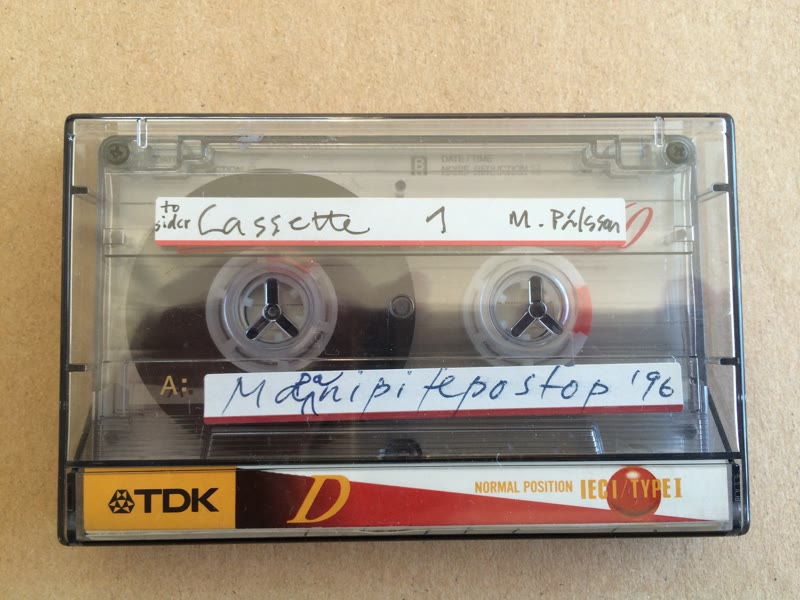 B DATE/TIME
NOISE REDUCTION
to
sider Cassette 1 M. Pålsson
A:
'96
TDK D NORMAL POSITION IEC I / TYPE I